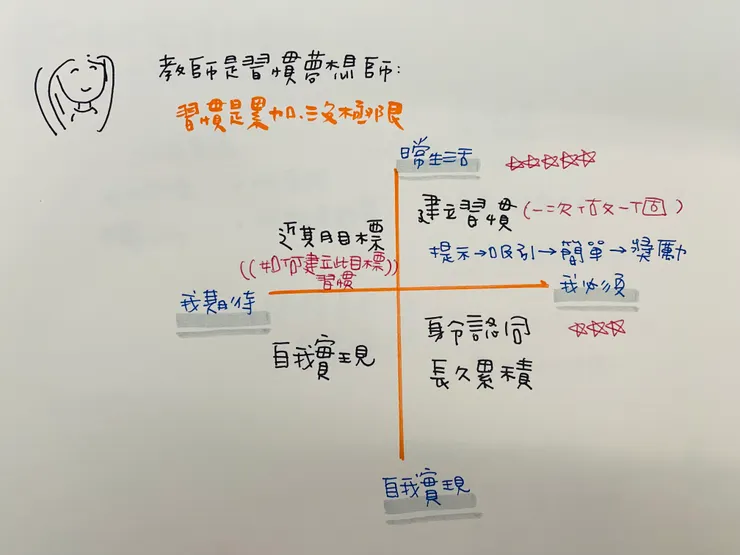 教師是習慣夢想師:
習慣是累加.沒極限
日常生活
☆☆☆☆☆
建立習慣
提示→吸引→簡單→獎勵
近期目標
((如何建立此目標))
習慣
我期待
我必須
☆☆☆
身份認同
長久累積
自我實現
自我實現